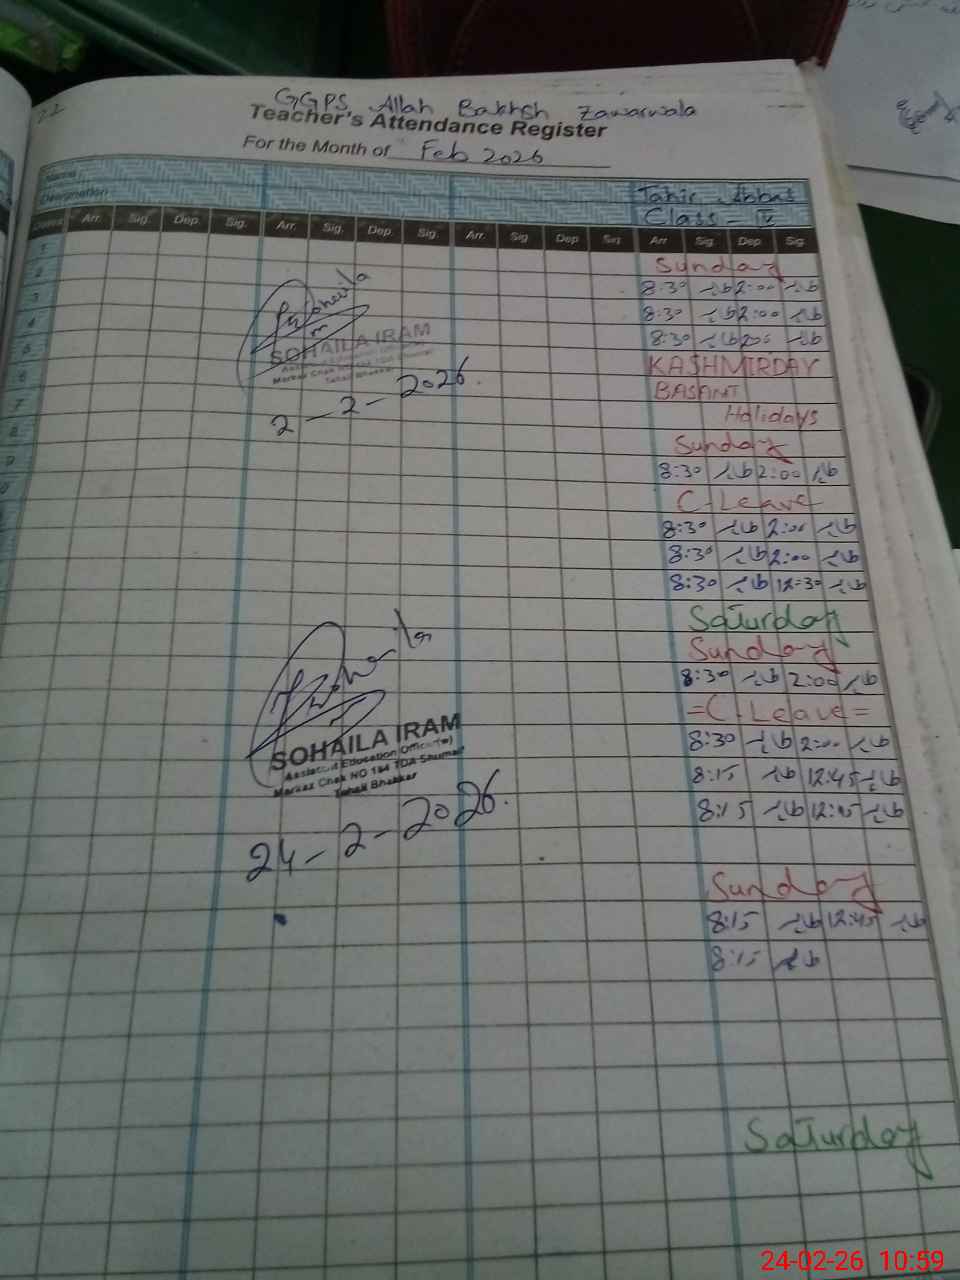 GGPS Allah Bakhsh Zawarwala
Teacher's Attendance Register
For the Month of Feb 2026
Name
Designation
Tahir Abbas
Class - IV
Dates Arr. Sig. Dep. Sig. Arr. Sig. Dep. Sig. Arr. Sig Dep Sig Arr Sig Dep Sig
1 Sunday
2 8:30 2:00
3 8:30 2:00
4 8:30
5 KASHMIRDAY
6 BASANT
7 Holidays
8 Sunday
9 8:30 2:00
C-Leave
8:30 2:00
8:30 2:00
8:30 12:30
Saturday
Sunday
8:30 2:00
=C-Leave=
8:30 2:00
8:15 12:45
8:15
Sunday
8:15 12:45
8:15
Saturday
SOHAILA IRAM
Assistant Education Officer (w)
Markaz Chak NO 164 TDA Shumali
Tehsil Bhakkar
2-2-2026.
SOHAILA IRAM
Assistant Education Officer (w)
Markaz Chak NO 164 TDA Shumali
Tehsil Bhakkar
24-2-2026.
24-02-26 10:59